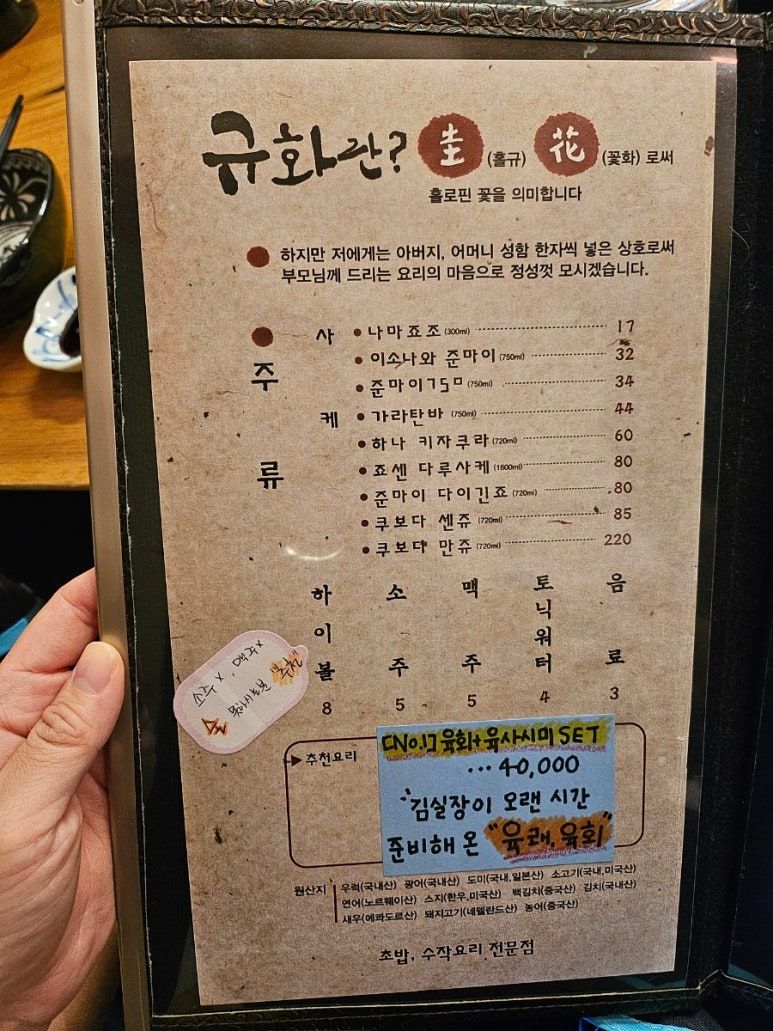 규화란? 圭 (홀규) 花 (꽃화) 로써
홀로핀 꽃을 의미합니다
하지만 저에게는 아버지, 어머니 성함 한자씩 넣은 상호로써
부모님께 드리는 요리의 마음으로 정성껏 모시겠습니다.
주류
사케
나마죠조 (300ml) 17
이소나와 준마이 (750ml) 32
준마이750 (750ml) 34
가라탄바 (750ml) 44
하나 키자쿠라 (720ml) 60
죠센 다루사케 (1800ml) 80
준마이 다이긴죠 (720ml) 80
쿠보다 센쥬 (720ml) 85
쿠보다 만쥬 (720ml) 220
하이볼 8
소주 5
맥주 5
토닉워터 4
음료 3
소주 x, 맥주x
못마시는분
추천
추천요리
[No.1] 육회+육사시미 SET
... 40,000
"김실장이 오랜 시간
준비해 온 "육괘, 육회"
원산지
우럭(국내산) 광어(국내산) 도미(국내,일본산) 소고기(국내,미국산)
연어(노르웨이산) 스지(한우,미국산) 백김치(중국산) 김치(국내산)
새우(에콰도르산) 돼지고기(네델란드산) 농어(중국산)
초밥, 수작요리 전문점